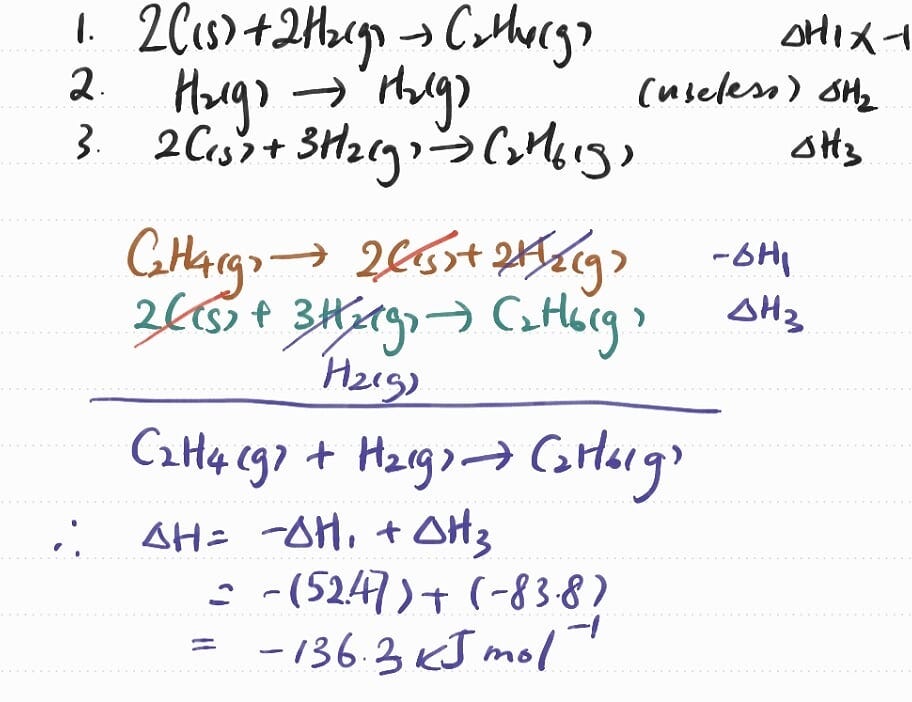 1. 2C(s)+2H2(g)→C2H4(g) ΔH1×-1
2. H2(g) → H2(g) (useless) ΔH2
3. 2C(s)+3H2(g)→C2H6(g) ΔH3
C2H4(g)→ 2C(s)+2H2(g) -ΔH1
2C(s)+ 3H2(g)→C2H6(g) ΔH3
H2(g)
C2H4(g) + H2(g)→C2H6(g)
∴ ΔH= -ΔH1 + ΔH3
= -(52.47)+(-83.8)
= -136.3 kJ mol-1